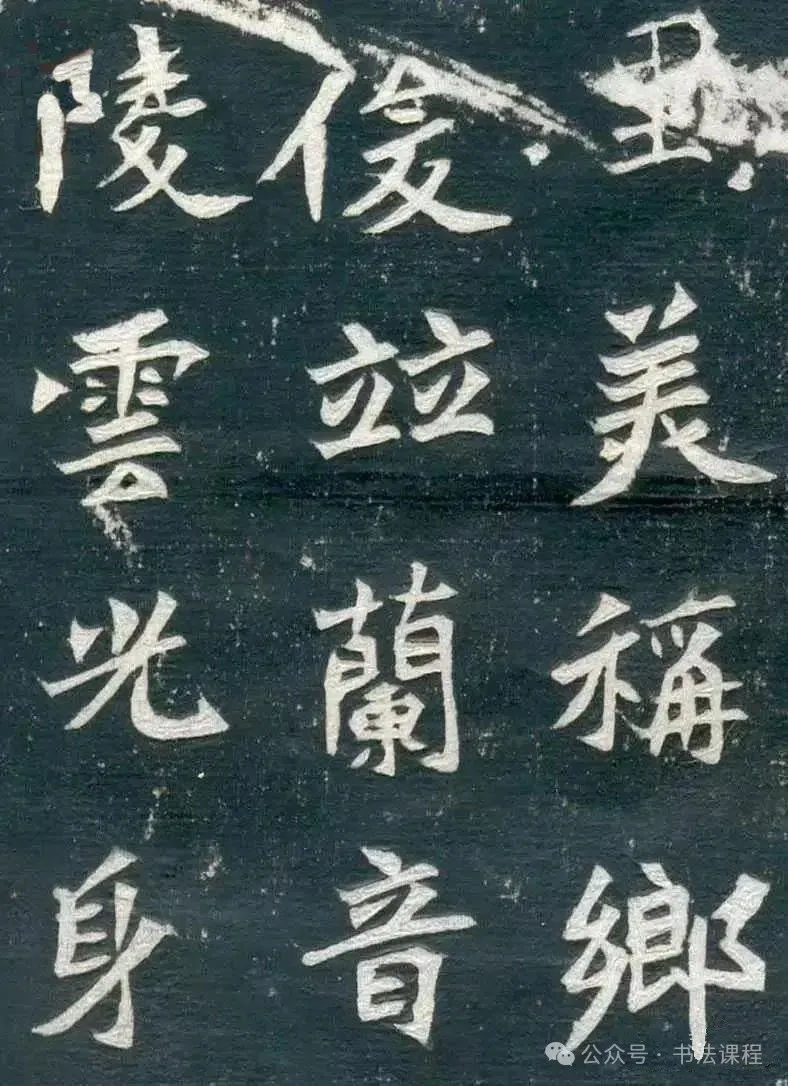 美稱鄉
俊竝蘭音
陵雲光身
公众号·书法课程